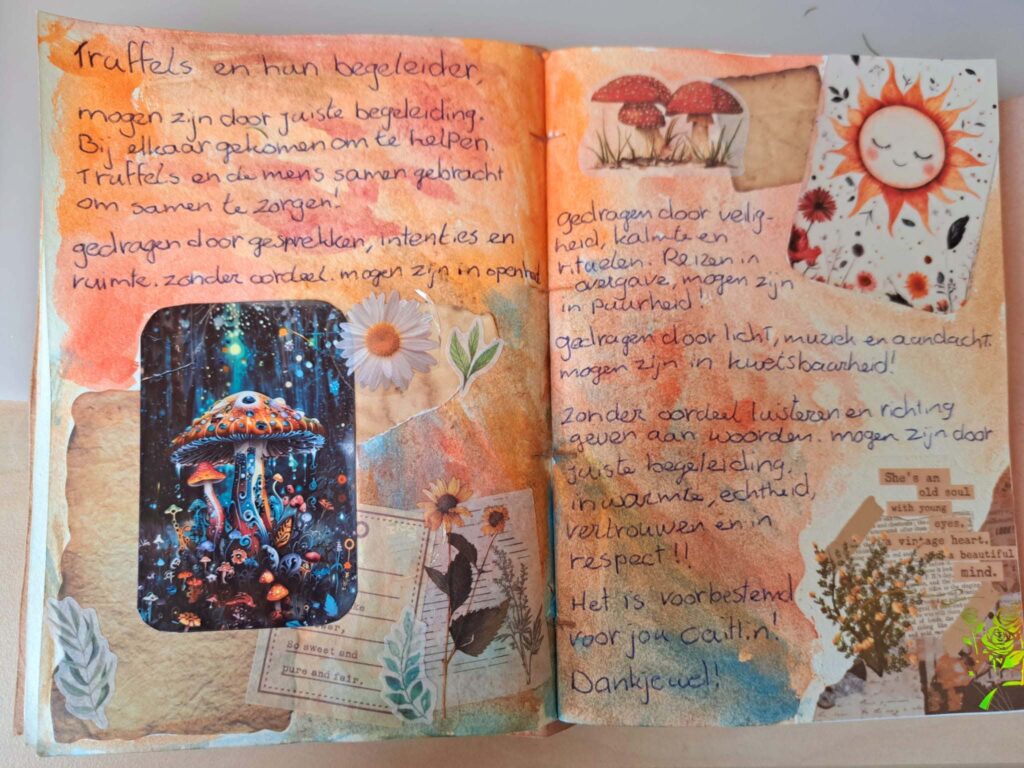 Truffels en hun begeleider,
mogen zijn door juiste begeleiding.
Bij elkaar gekomen om te helpen.
Truffels en de mens samen gebracht
om samen te zorgen!
gedragen door gesprekken, intenties en
ruimte. zonder oordeel. mogen zijn in openheid
So sweet and
pure and fair,
gedragen door veilig-
heid, kalmte en
rituelen. Reizen in
overgave, mogen zijn
in puurheid!
gedragen door licht, muziek en aandacht.
mogen zijn in kwetsbaarheid!
zonder oordeel luisteren en richting
geven aan woorden. mogen zijn door
juiste begeleiding.
in warmte, echtheid,
vertrouwen en in
respect!!
Het is voorbestemd
voor jou Caitlin!
Dankjewel!
She's an
old soul
with young
eyes,
a vintage heart,
a beautiful
mind.